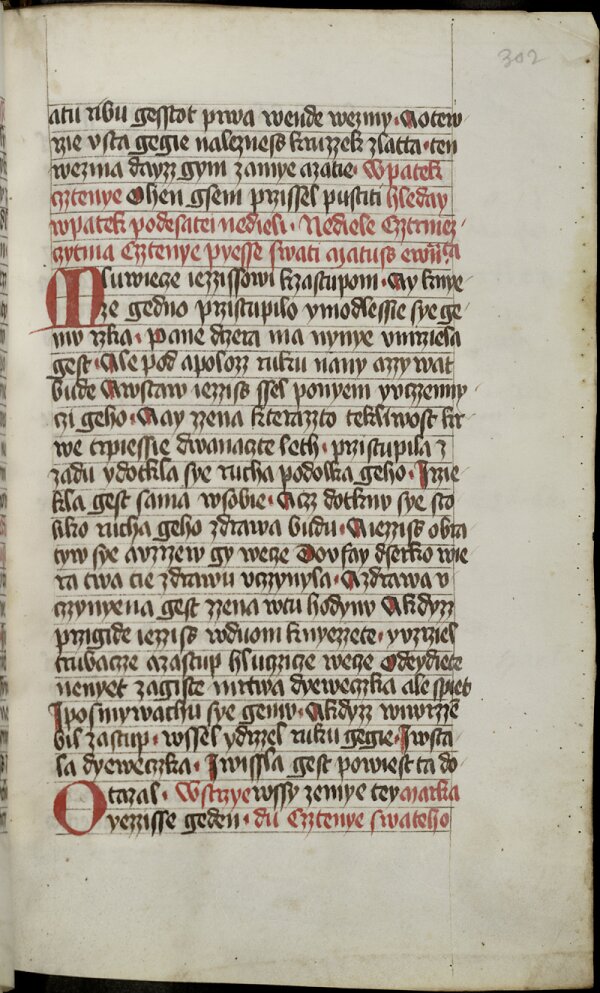 302
atu ribu gesstot prwa wende wezmy · A otew
rzie vsta gegie nalezness kruzzek zlatta · ten
wezma dayzz gym zamye azatie · Wpatek
czztenye Ohen gsem przissel pustiti hleday
wpatek podesatei nedieli · Nediele Cztrmez
czytma Czztenye pyesse swati Matuss ewā
Mluwieze iezzissowi kzastupom · Ay knye
ze gedno przistupilo ymodlessie sye ge
mw rzka · Pane dzera ma nynye vmrziela
gest · Ale pod apolozz ruku nany azzy wat
bude Awstaw iezziss ssel ponyem yvczzenny
czi geho · A ay zzena kterazzto tekliwost kr
we trpiessie dwanaczte leth · przistupila z
zadu ydotkla sye rucha podolka geho · Irzie
kla gest sama wsobie · Aczz dotknu sye sto
liko rucha geho zdrawa budu · Aiezziss obra
tyw sye avzrzew gy wecze Dovfay dserko wie
ra twa tie zdrawu vczynyla · Azdrawa v
czzynyena gest zzena wtu hodynv Akdyzz
przigide iezziss wduom knyezzete · yvzrziel
trubacze azastup hluczicze wecze Odeydiete
nenyet zagiste mrtwa dyeweczka ale spiet
Iposmywachu sye gemv · Akdyzz wywrzze
bil zastup · wssel ydrzzel ruku gegie · Iwsta
la dyeweczka · Iwissla gest powiest ta do
Otazal · Wstrzye wssy zemye tey Marka
vezzisse geden · du Czztenye swateho